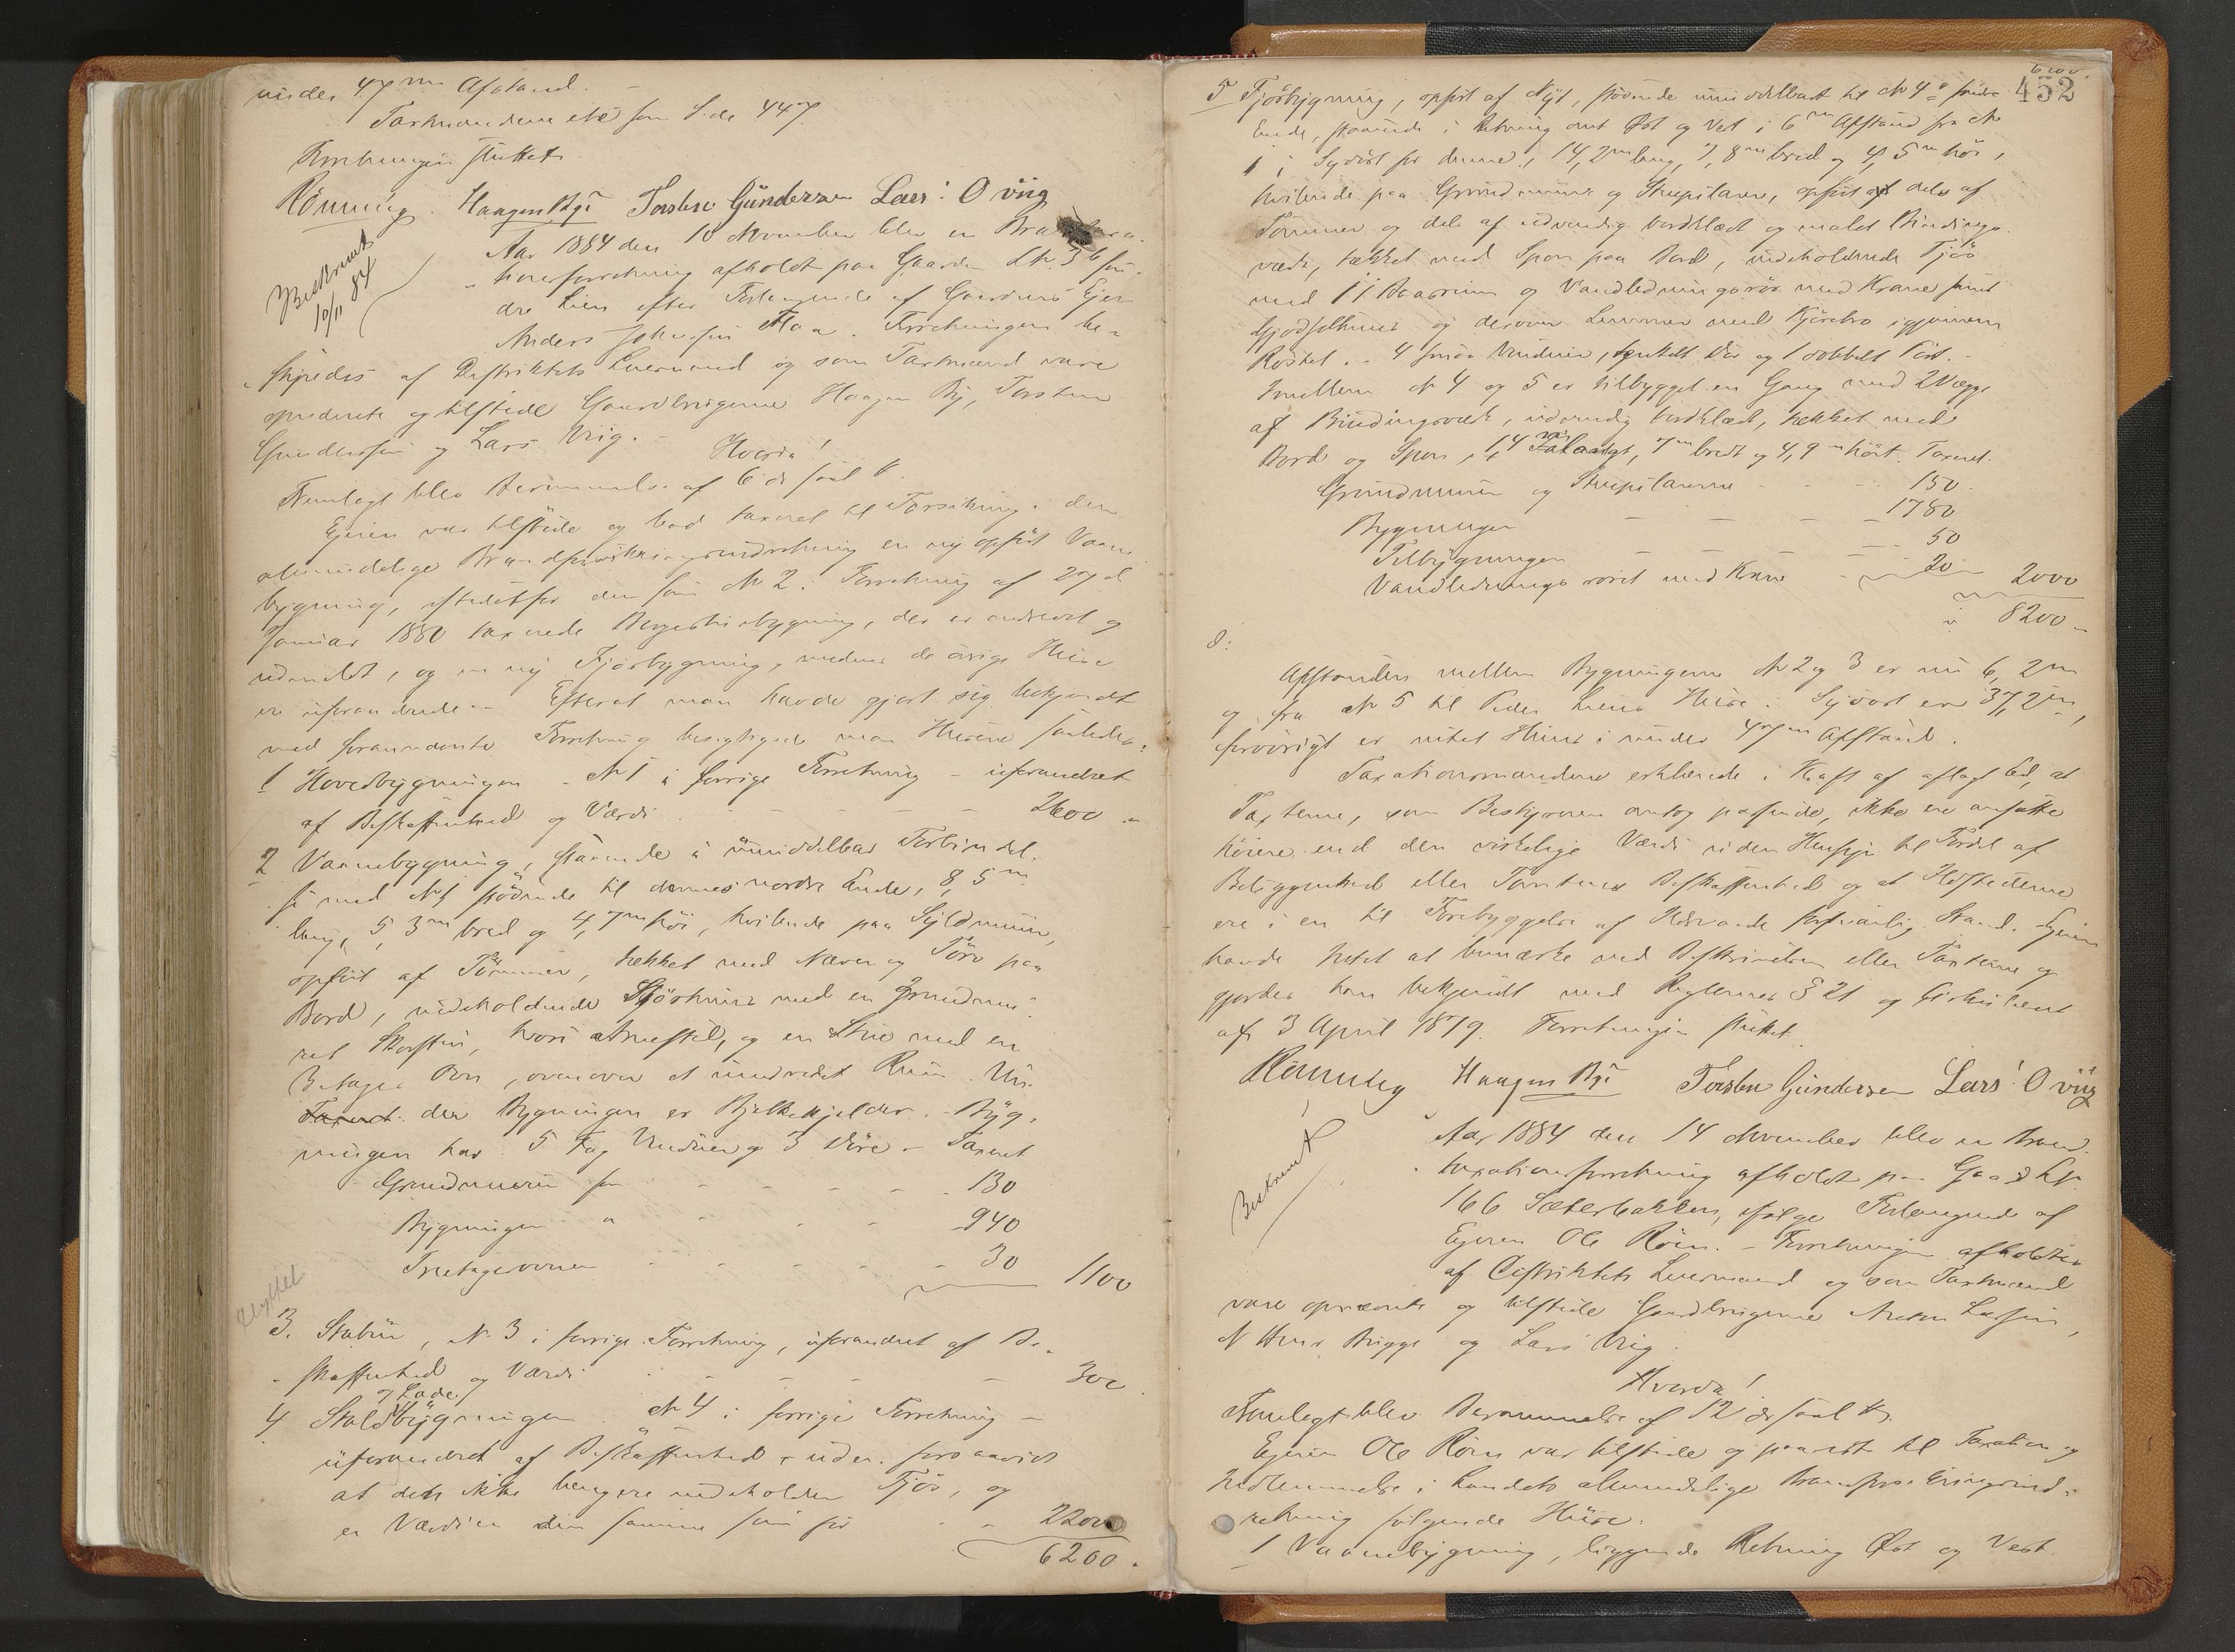 under 47 m Afstand.
Taxmændene etc som Side 447.
Forretningen sluttet.
Rönning. Haagen By Torsten Gundersen Lars Oviig
Beskrevet
10/11 84
Aar 1884 den 10 November blev en
forretning afholdt paa Gaarden LNr 36
dre Lien efter Forlangende af Gaardens Ejer
Anders Johnsen Flaa. Forretningen be-
styredes af Distriktets Lensmand og som Taxmænd vare
opnævnte og tilstede Gaardbrugerne Haagen By, Torsten
Gundersen og Lars Viig.
Hvorda!
Fremlagt blev Berammelse af 6 ds saal.
Ejeren var tilstede og bad taxeret til Forsikring i den
almindelige Brandforsikringsindretning en ny opført Vaane-
bygning, istedetfor den som No 2 i Forretning af 27d
Januar 1880 taxerede Borgestuebygning, der er nedrevet og
udmeldt, og en ny Fjösbygning, medens de övrige Huse
ere uforandrede. - Efterat man havde gjort sig bekjendt
med forannævnte Forretning besigtigede man Husene saaledes:
1 Hovedbygningen - No 1 i forrige Forretning - uforandret
af Beskaffenhed og Værdi - - - 2600 -
2 Vaanebygning, staaende i umiddelbar Forbindel-
se med No 1 stödende til dennes nordre Ende, 8,5 m
lang, 5,3 m bred og 4,7 m höi, hvilende paa Syldmuur,
opfört af Tömmer, tækket med Næver og Törv paa
Bord, indeholdende Kjökken med en Grundmu-
ret Skorsten, hvori Arnested, og en Stue med en
3 etages Ovn, ovenover et indredet Rum. Un-
der Bygningen er Bjelkekjelder. - Byg-
ningen har 5 Fag Vinduer og 3 Döre - Taxeret
Grundmuren for - - - 130
Bygningen " - - - 940
Treetagesovnen - - - 30
1100
Flyttet
3. Stabur, No 3 i forrige Forretning, uforandret af Be-
skaffenhed og Værdi - - - 300
og Lade
4 Staldbygningen No 4 i forrige Forretning -
uforandret af Beskaffenhed, uden forsaavidt
at den ikke længere indeholder Fjös, og
er Værdien den samme som før - - 2200
6200.
452
5 Fjösbygning, opfört af Nyt, stödende umiddelbart til No 4s söndre
Ende, staaende i Retning omt Øst og Vest i 6 m Afstand fra No
1 i Sydöst for denne, 14,2 m lang, 7,8 m bred og 4,5 m höi,
hvilende paa Grundmuur og Steenpilarer, opfört dels af
Tömmer og dels af udvendig bordklædt og malet Bindings-
værk, tækket med Spon paa Bord, indeholdende Fjös
med 11 Baasrum og Vandledningsrör med Krane samt
Gjödselhuus og derover Laave med Kjörebro igjennem
Röstet. - 4 smaa Vinduer, 1 enkelt Dör og 1 dobbelt Port. -
Imellem No 4 og 5 er tilbygget en Gang med 2 Vægge
af Bindingsværk, udvendig bordklædt, tækket med
Bord og Spon, langt, 7 m bredt og 4,9 m höit. Taxeret.
Grundmuren og Steenpilarerne - - 150
Bygningen - - - 1780
Tilbygningen - - - 50
Vandledningsröret med Krane - - 20
2000
8200 -
Afstanden mellem Bygningerne No 2 og 3 er nu 6,2 m
og fra No 5 til Peder Liens Huse i Sydöst er 37,2 m,
forövrigt er intet Huus i under 47 m Afstand.
Taxationsmændene erklærede i Kraft af aflagt Eed, at
Taxterne, som Bestyreren antog passende, ikke ere ansatte
höiere end den virkelige Værdi uden Hensyn til Fordel af
Beliggenhed eller Tomtens Beskaffenhed og at Ildstederne
ere i en til Forebyggelse af Ildsvaade forsvarlig Stand. Ejeren
havde Intet at bemærke ved Beskrivelsen eller Taxterne og
gjordes han bekjendt med Reglernes § 21 og Cirkulære
af 3 April 1879. Forretningen sluttet.
Rönning Haagen By Torsten Gundersen Lars Oviig
Beskrevet
Aar 1884 den 14 November blev en Brand-
taxationsforretning afholdt paa Gaard LNr
166 Sæterbakken, ifölge Forlangende af
Ejeren Ole Röen. - Forretningen afholdtes
af Distriktets Lensmand og som Taxmænd
vare opnævnte og tilstede Gaardbrugerne Larsen,
Brygge og Lars Viig.
Hvorda!
Fremlagt blev Berammelse af 12 ds saal.
Ejeren Ole Röen var tilstede og paaviste til Taxation og
Indlemmelse i Landets almindelige Brandforsikringsind-
retning fölgende Huse.
1 Vaanebygning, liggende Retning Øst og Vest.